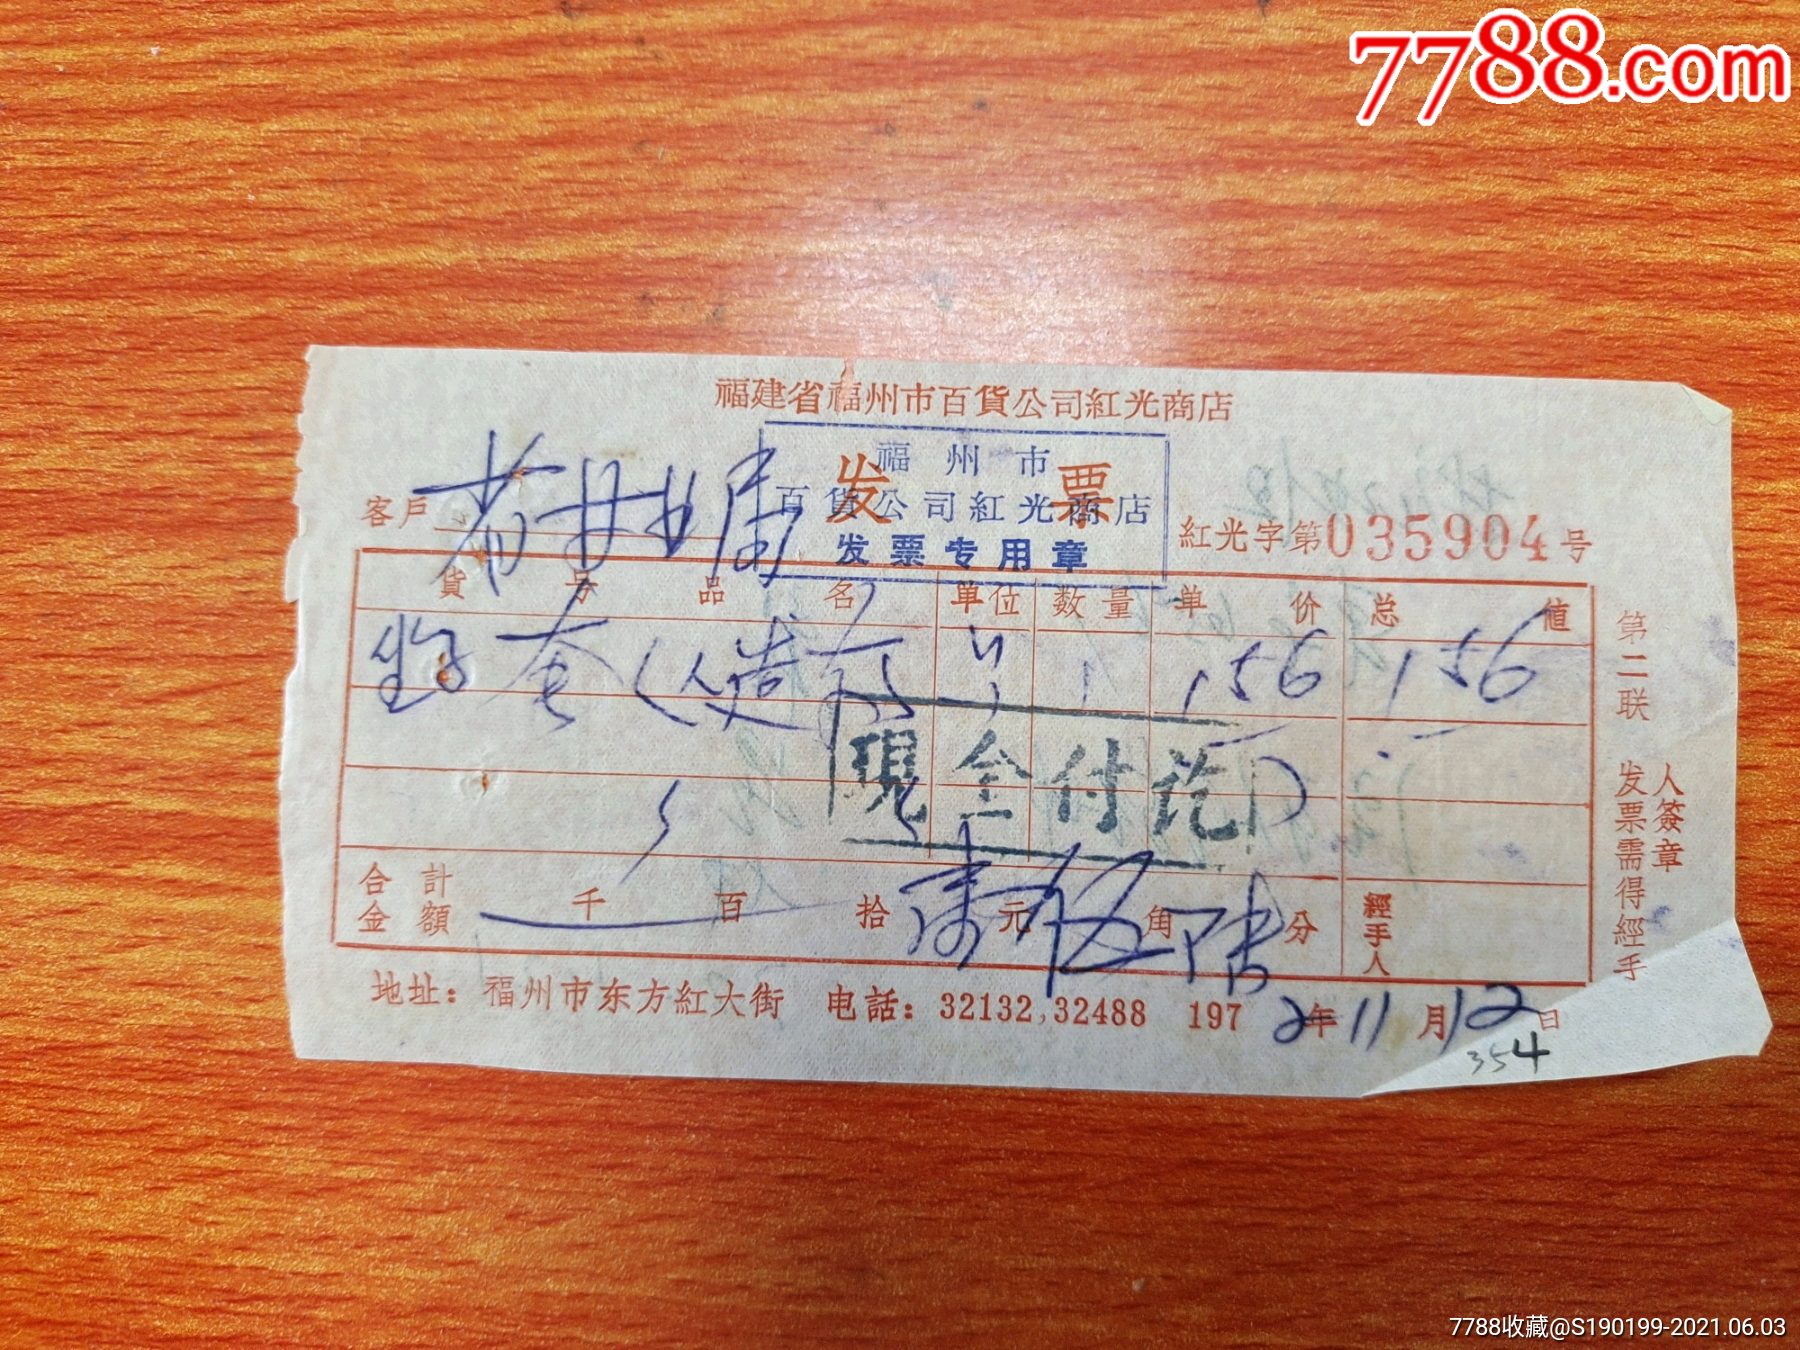 7788.com
福建省福州市百貨公司紅光商店
发 票
福州市
百貨公司紅光商店
发票专用章
客戶
紅光字第035904号
貨号品名 单位 数量 单价 总值
(人造 1 1.56 1.56
現金付讫
合計金額 千 百 拾 壹元伍角陆分 經手人
地址：福州市东方紅大街 电話：32132,32488 1972年11月12日
354
第二联 发票需得經手
人簽章
7788收藏@S190199-2021.06.03